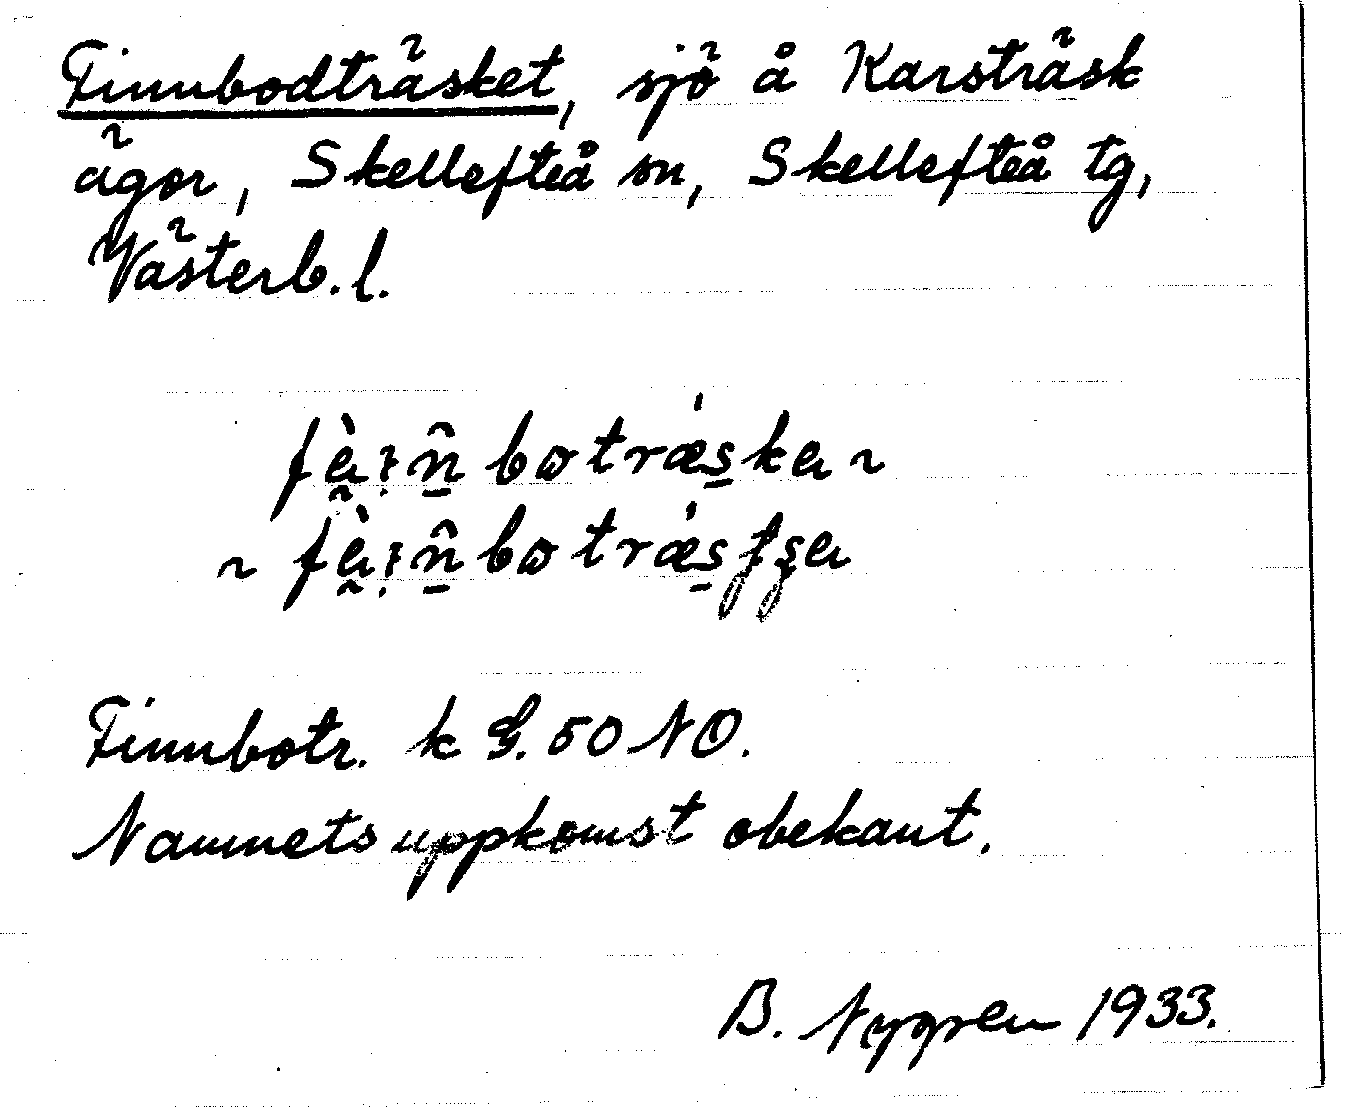 Finnbodträsket, sjö å Karsträsk
ägor, Skellefteå sn, Skellefteå tg,
Västerb. l.
botræ̀ska ~
~
Finnbotr. k G. 50 NO.
Namnets uppkomst obekant.
B. Nygren 1933.